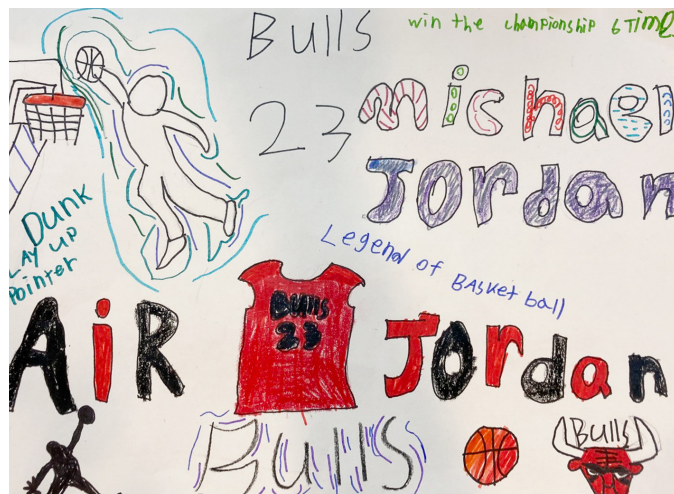 Bulls
win the championship 6 Time
23
michael
JOrdan
Dunk
LAY UP
Pointer
Legend of BASket ball
AiR
Bulls
23
JOrdan
Bulls
BUllS